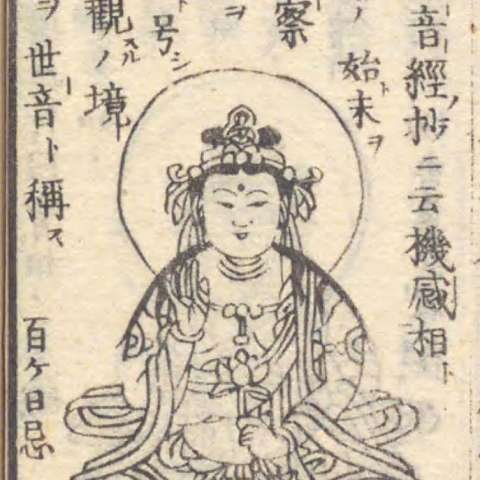 音經抄ニ云機感相ト
ノ始末ヲ
察
ヲ
号シ
觀スルノ境ト
ヲ世音ト稱ス
百ケ日忌